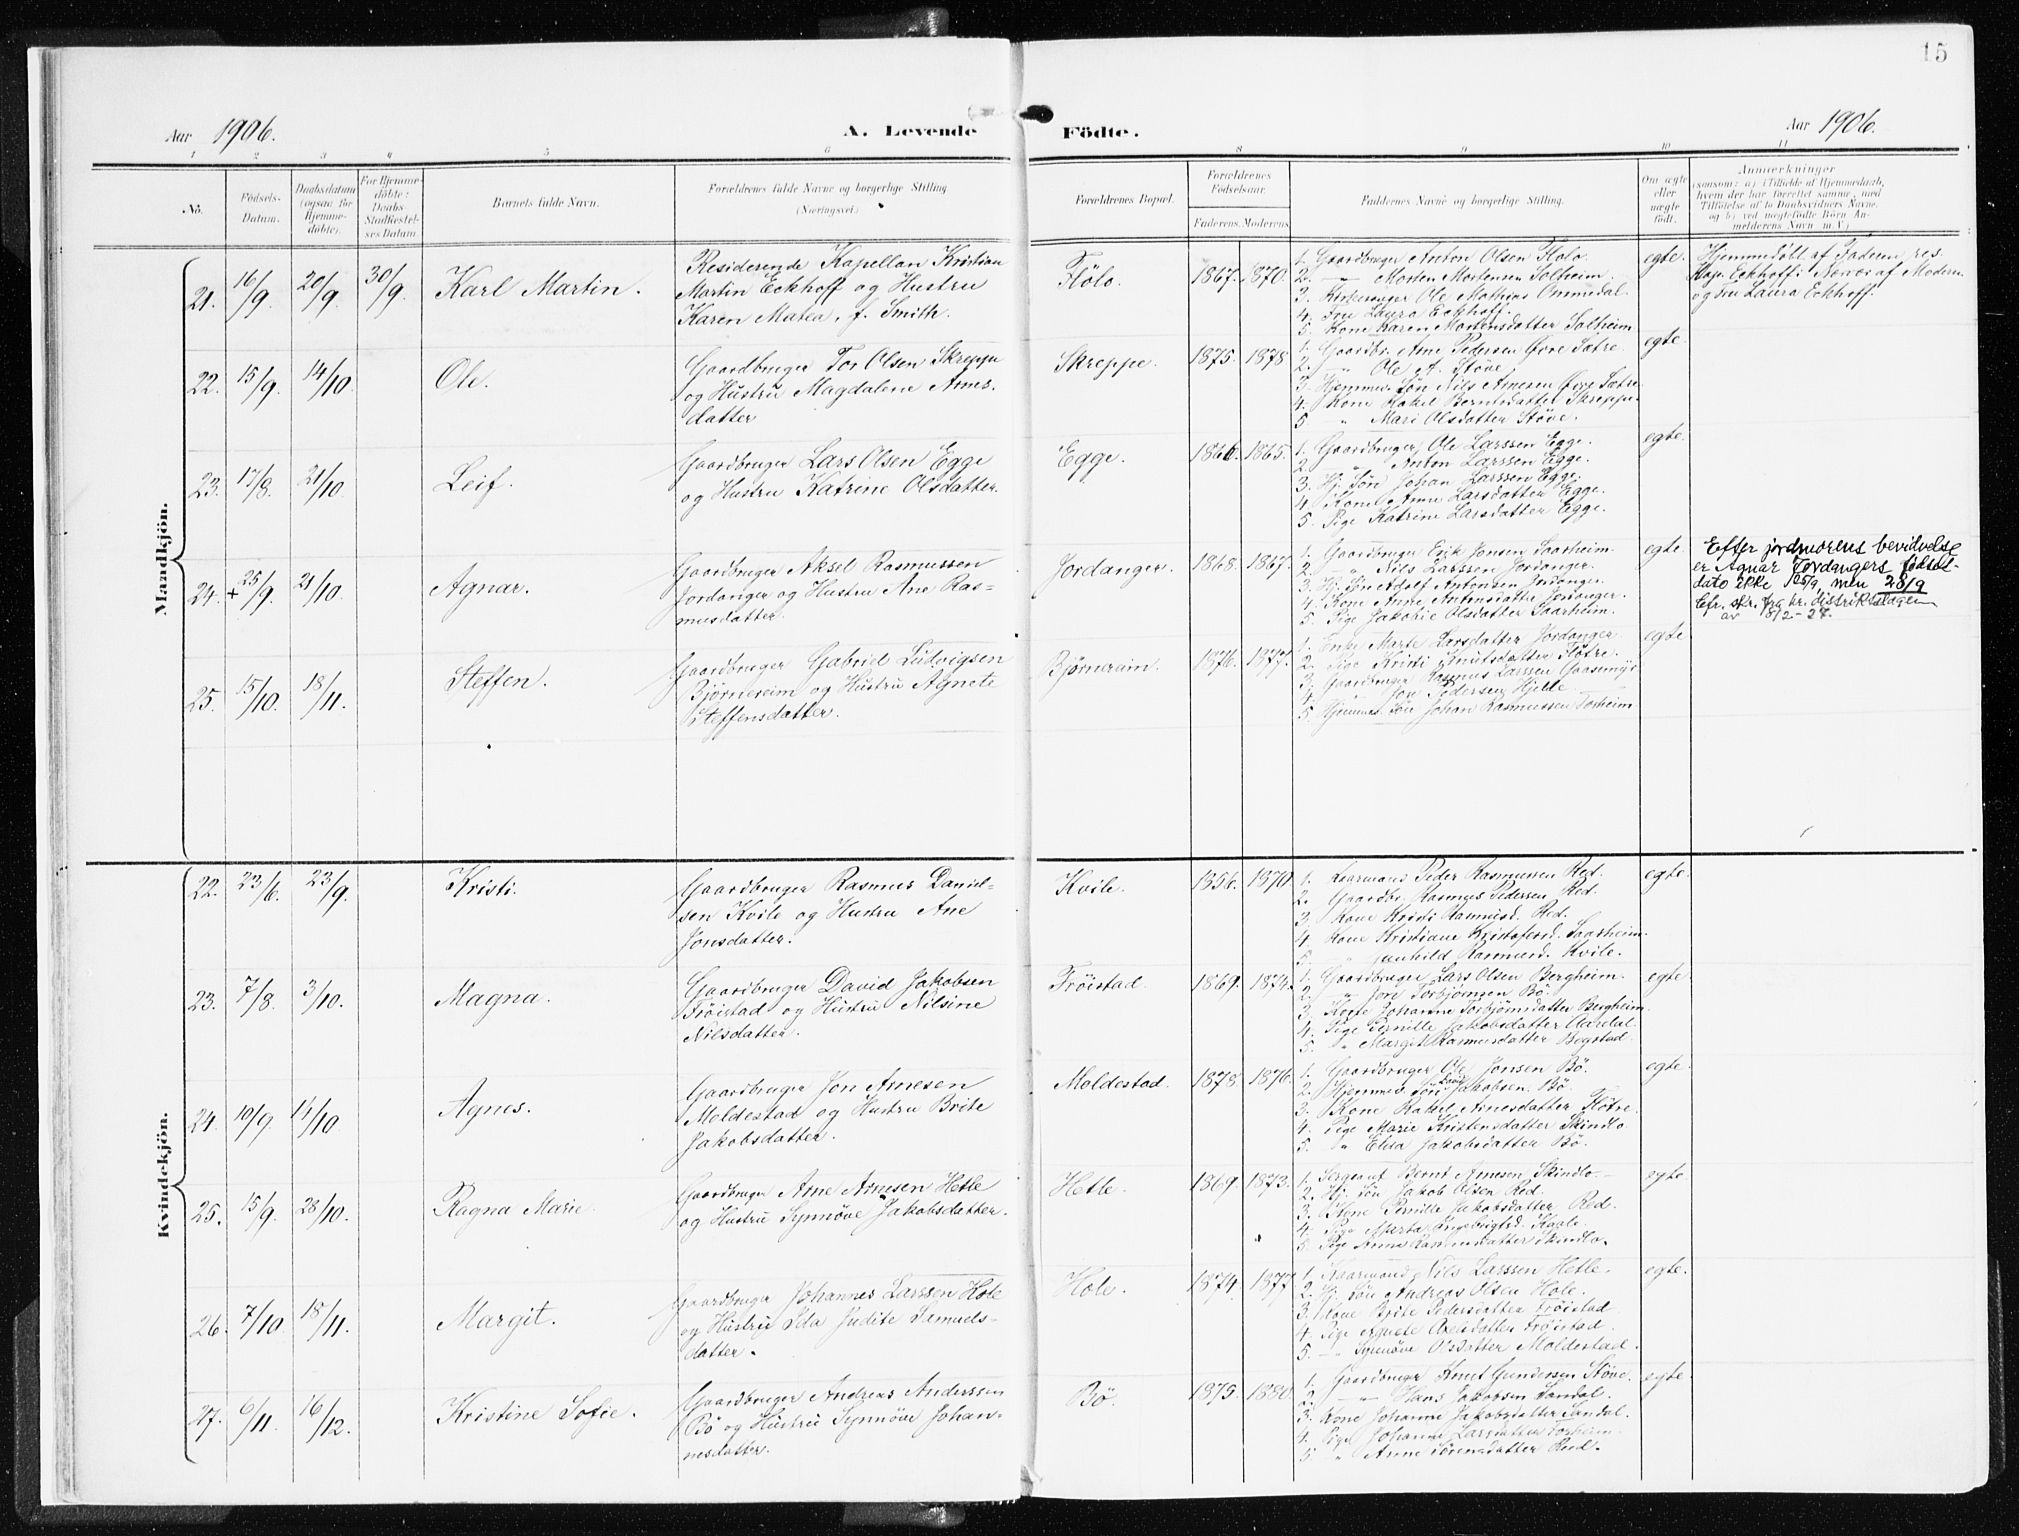 15
Aar 1906.
A. Levende
Födte.
Aar 1906.
1 2 3 4 5 6 8 9 10 11
No.
Födsels-
Datum.
Daabsdatum
(ogsaa for
Hjemme-
döbte).
For Hjemme-
döbte:
Daabs-
Stadfestel-
ses Datum.
Barnets fulde Navn.
Forældrenes fulde Navne og borgerlige Stilling
(Næringsvei).
Forældrenes Bopæl.
Forældrenes
Födselsaar.
Faderens. Moderens.
Faddernes Navne og borgerlige Stilling.
Om ægte
eller
uægte
födt.
Anmærkninger
(saasom: a) i Tilfælde af Hjemmedaab,
hvem der har forrettet samme, med
Tilföielse af to Daabsvidners Navne,
og b) ved uægtefödte Börn An-
melderens Navn m. V.)
Mandkjön.
21. 16/9 20/9 30/9 Karl Martin.
Residerende Kapellan Kristian
Martin Eckhoff og Hustru
Karen Matea, f. Smith.
Flölo. 1867. 1870.
1. Gaardbruger Anton Olsen Flolo
2. — Morten Mortensen Solheim.
3. Kirkesanger Ole Mathias Ommedal.
4. Fru Laura Eckhoff.
5. Kone Karen Mortensdatter Solheim
egte.
Hjemmedöbt af Faderen, res.
Kap. Eckhoff; Nærv. af Moderen
og Fru Laura Eckhoff.
22. 15/9 14/10 Ole.
Gaardbruger Tor Olsen Skreppe
og Hustru Magdalene Arnes-
datter
Skreppe. 1875. 1878.
1. Gaardbr. Arne Pedersen Øvre Sætre
2. " Ole A. Støve
3. Hjemmev. Søn Nils Arnesen Øvre Sætre
4. Kone Rakel Berntsdatter Skreppe.
5 " Mari Olsdatter Støve.
egte.
23. 17/8 21/10 Leif.
Gaardbruger Lars Olsen Egge
og Hustru Katrine Olsdatter.
Egge. 1866. 1865.
1. Gaardbruger Ole Larssen Egge.
2. " Anton Larssen Egge.
3. Hj. Søn Johan Larssen Egge.
4. Kone Anne Larsdatter Egge.
5. Pige Katrine Larsdatter Egge.
egte.
24. + 25/9 21/10. Agnar.
Gaardbruger Aksel Rasmussen
Jordanger og Hustru Ane Ras-
musdatter.
Jordanger. 1868. 1867.
1. Gaardbruger Erik Jonsen Saarheim.
2. " Nils Larssen Jordanger.
3. Hj. Søn Adolf Antonsen Jordanger.
4. Kone Anne Antonsdatter Jordanger.
5. Pige Jakobie Olsdatter Saarheim.
egte.
Efter jordmorens bevidnelse
er Agnar Jordangers födsels-
dato ikke 25/9, men 28/9
Cfr. skr. fra hr. distriktslægen
av 18/2-27.
25. 15/10. 18/11. Steffen.
Gaardbruger Gabriel Ludvigsen
Bjørnereim og Hustru Agnete
Steffensdatter.
Bjørnereim. 1876. 1877.
1. Enke Marte Larsdatter Jordanger.
2. Pige Kristi Knutsdatter Fløtre.
3. Gaardbruger Rasmus Larssen Gaasemyr
4. " Jon Pedersen Hjelle
5. Hjemmev. Søn Johan Rasmussen Torheim
egte.
Kvindekjön.
22. 23/6. 23/9. Kristi.
Gaardbruger Rasmus Daniel-
sen Kvile og Hustru Ane
Jonsdatter.
Kvile. 1856. 1870
1. Kaarmand Peder Rasmussen Red.
2. Gaardbr. Rasmus Pedersen Red.
3. Kone Kristi Rasmusd. Red.
4. Kone Kristiane Kristofersd. Saarheim.
5. " Gunhild Rasmusd. Kvile.
egte.
23. 7/8. 3/10. Magna.
Gaardbruger David Jakobsen
Frøistad og Hustru Nilsine
Nilsdatter.
Frøistad 1869. 1874.
1. Gaardbruger Lars Olsen Bergheim.
2. — " Jore Torbjørnsen Bø.
3. Kone Johanne Torbjørnsdatter Bergheim.
4. Pige Pernille Jakobsdatter Aardal.
5. " Margit Rasmusdatter Bogstad.
egte
24. 19/9 14/10 Agnes.
Gaardbruger Jon Arnesen
Moldestad og Hustru Brite
Jakobsdatter.
Moldestad. 1878. 1876.
1. Gaardbruger Ole Jonsen Bø.
2. Hjemmev. Søn Jakobsen Bø.
3. Kone Rakel Arnesdatter Fløtre.
4. Pige Marie Kristensdatter Skindlo
5. " Elisa Jakobsdatter Bø.
egte.
25. 15/9. 28/10. Ragna Marie.
Gaardbruger Arne Arnesen Hetle
og Hustru Synnøve Jakobsdatter.
Hetle. 1869. 1873.
1. Sergeant Bernt Arnesen Skindlo
2. Hj. Søn Jakob Olsen Red.
3. Kone Pernille Jakobsdatter Red.
4. Pige Marta Ingebrigtsd. Kaale.
5. Pige Anna Rasmusdatter Skindlo.
egte
26. 7/10. 18/11. Margit.
Gaardbruger Johannes Larssen Hole
og Hustru Ida Judite Samuels-
datter.
Hole. 1874. 1877.
1. Kaarmand Nils Larssen Hetle.
2. Hj. Søn Andreas Olsen Hole.
3. Kone Brite Pedersdatter Frøistad.
4. Pige Agnete Axelsdatter Frøistad.
5. — " Synnøve Olsdatter Moldestad.
egte.
27. 6/11. 16/12. Kristine Sofie.
Gaardbruger Andreas Anderssen
Bø og Hustru Synnøve Johan-
nesdatter.
Bø. 1875. 1880.
1. Gaardbruger Knut Gundersen Støve.
2. — " Hans Jakobsen Sandal.
3. Kone Johanne Jakobsdatter Sandal.
4. Pige Johanne Larsdatter Torheim.
5. " Anne Sørensdatter Red.
egte.